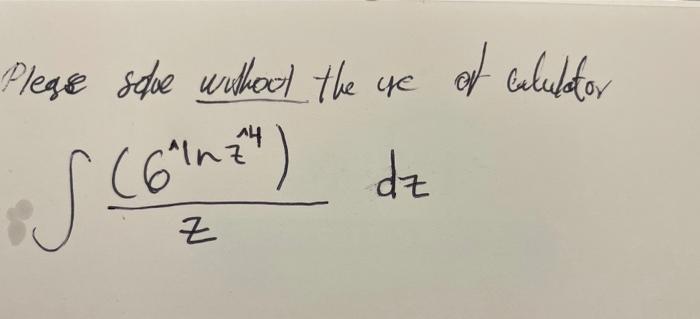 Please solve without the use of calculator
∫ (6^ln z^4) / z dz